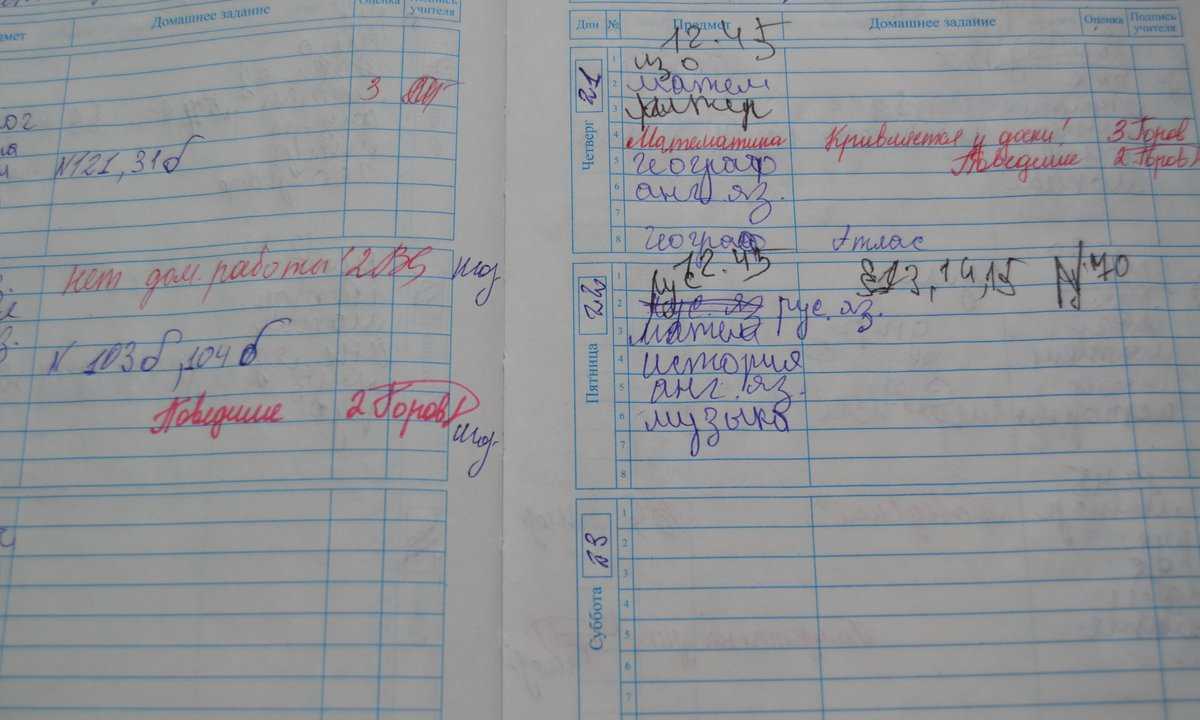 Домашнее задание
Оценка
Подпись учителя
3
№121, 31б
нет дом. работы! 2
N 103б, 104б
Поведение 2 Горов
Дни № Предмет Домашнее задание Оценка Подпись учителя
12.45
Четверг 21
1 изо
2 матем
3
4 Математика Кривляется у доски! 3 Горов
5 географ Поведение 2 Горов
6 анг. яз.
7
8 географ Атлас
12.45
Пятница 22
1 рус §13, 14, 15 №70
2 рус. яз. рус. яз.
3 матем
4 история
5 анг. яз.
6 музыка
7
8
Суббота 23
1
2
3
4
5
6
7